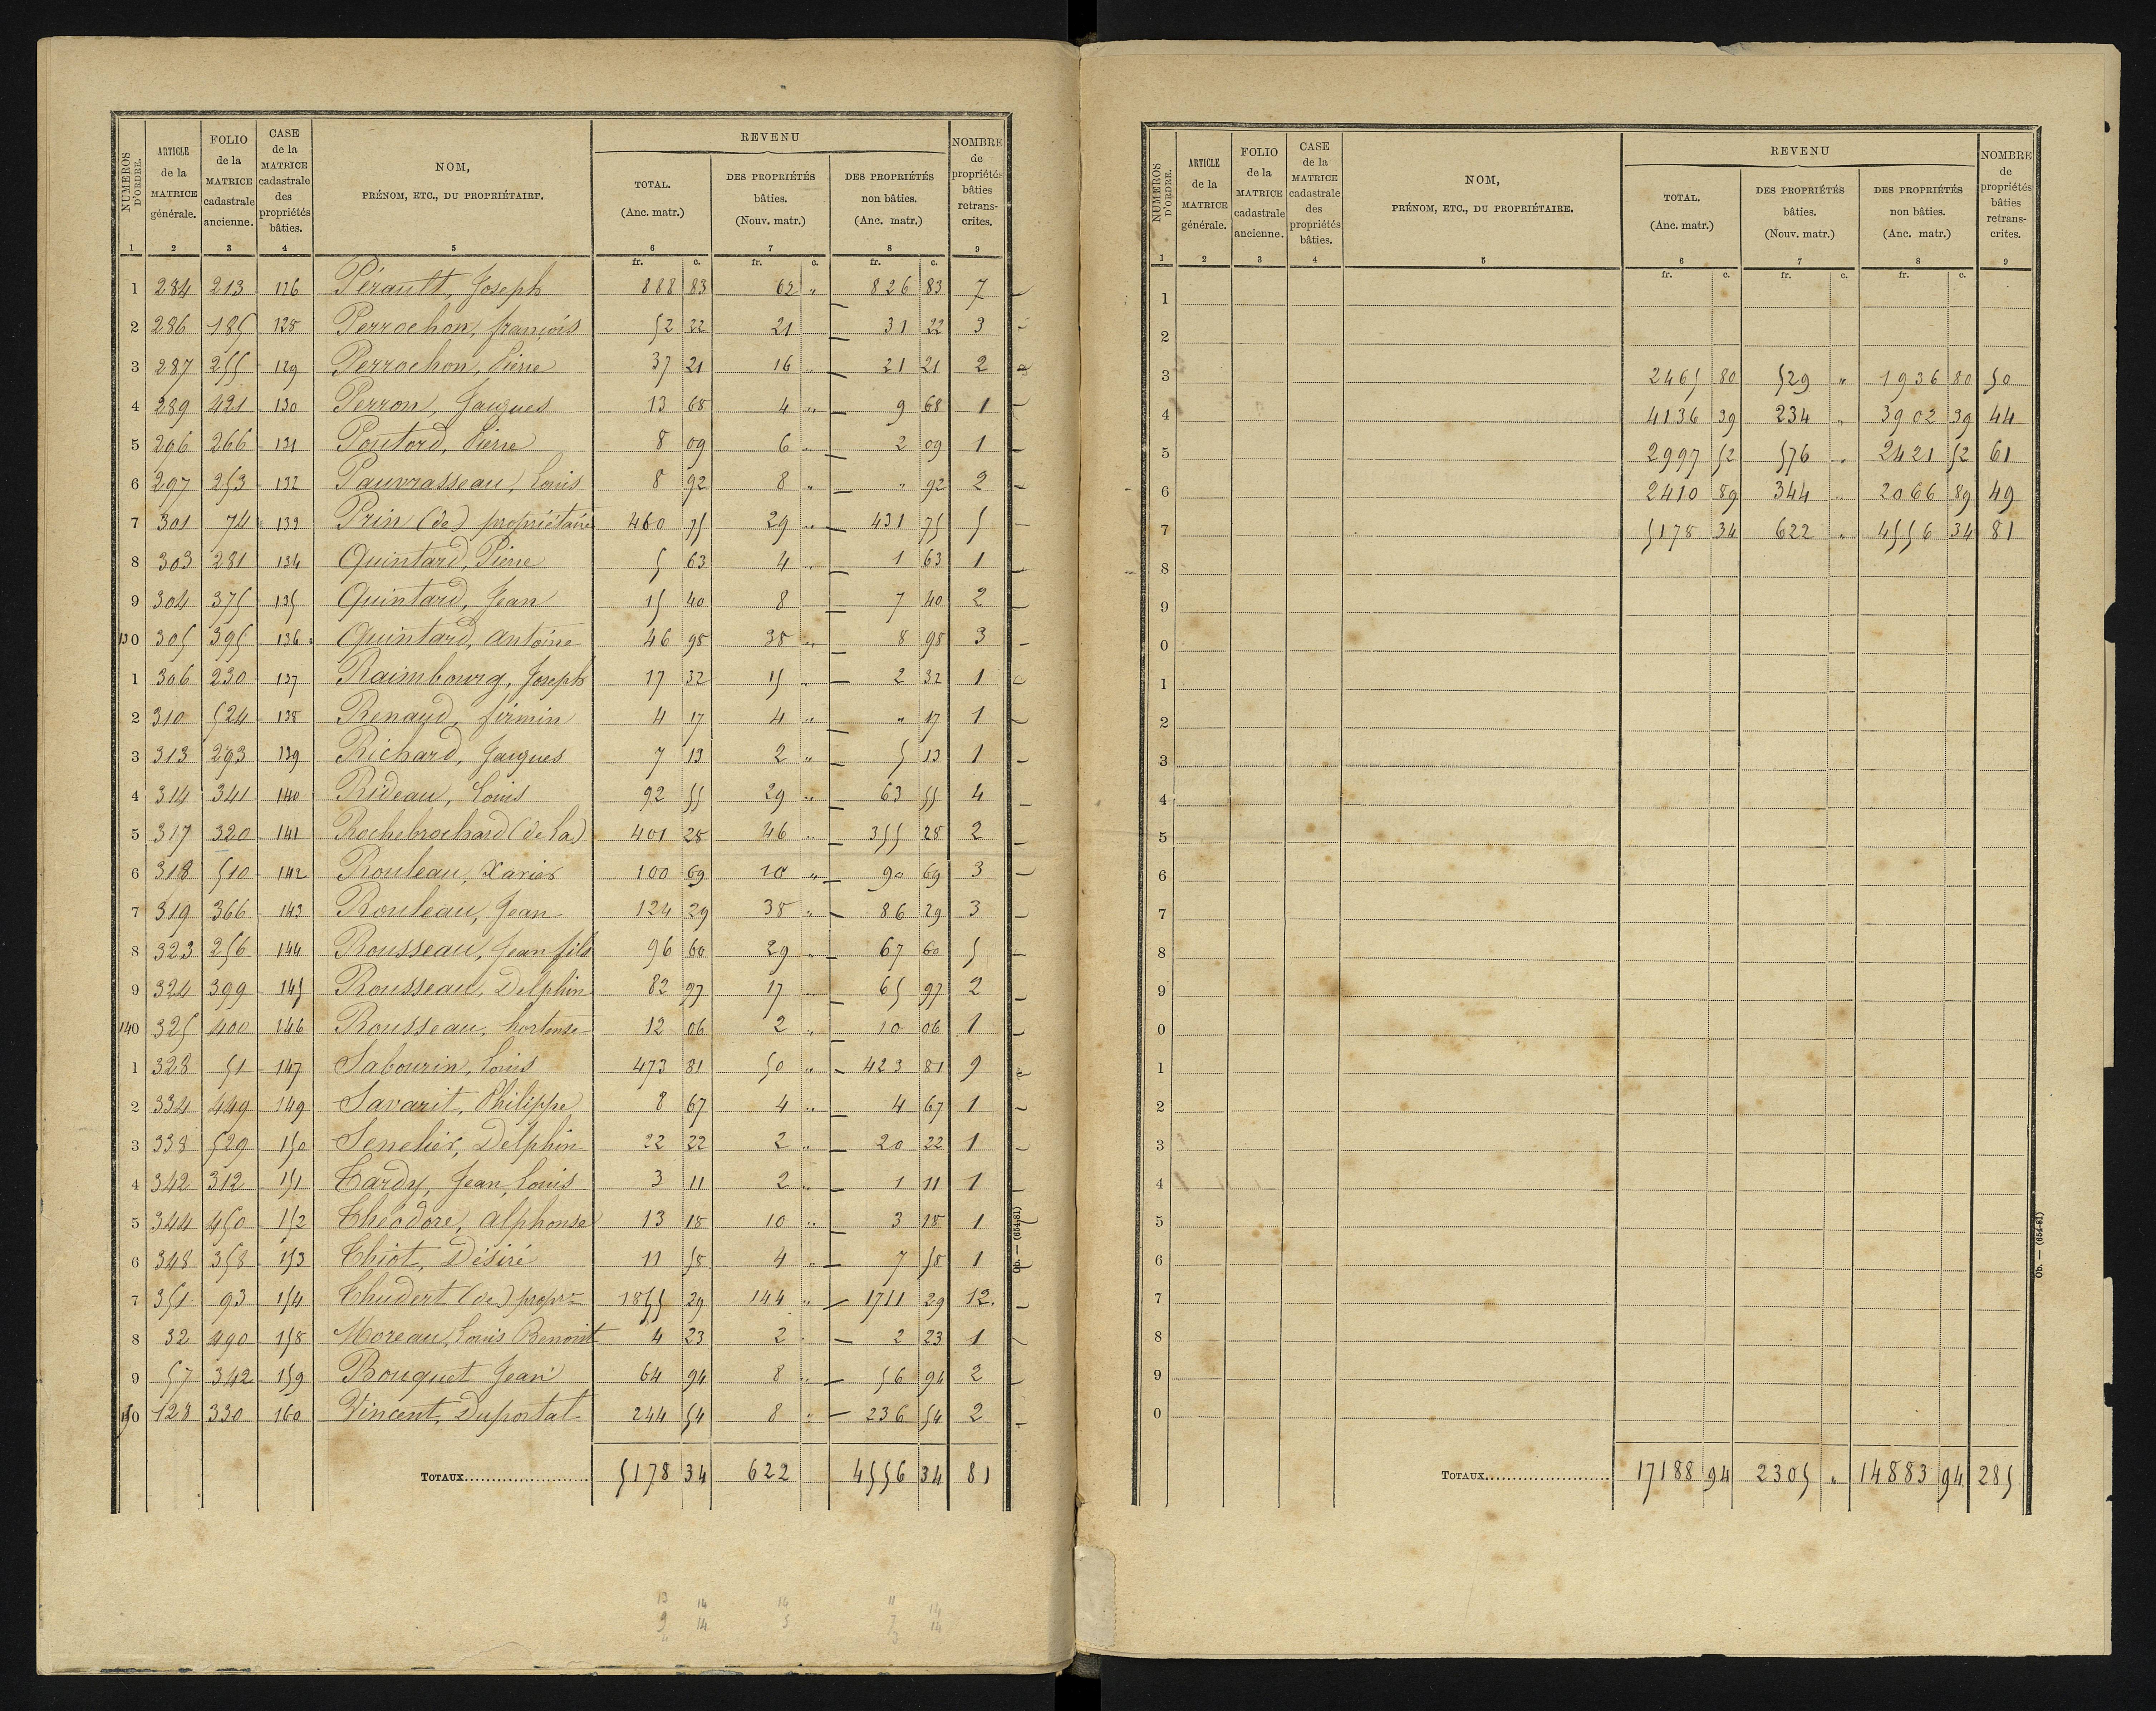 NUMÉROS D'ORDRE. | ARTICLE de la MATRICE générale. | FOLIO de la MATRICE cadastrale ancienne. | CASE de la MATRICE cadastrale des propriétés bâties. | NOM, PRÉNOM, ETC., DU PROPRIÉTAIRE. | REVENU TOTAL. (Anc. matr.) | DES PROPRIÉTÉS bâties. (Nouv. matr.) | DES PROPRIÉTÉS non bâties. (Anc. matr.) | NOMBRE de propriétés bâties retranscrites.
1 2 3 4 5 6 7 8 9
fr. c. fr. c. fr. c.
1 284 213 126 Pérault, Joseph 888 83 62 " 826 83 7
2 286 185 128 Perrochon, françois 52 22 21 31 22 3
3 287 255 129 Perrochon, Pierre 37 21 16 " 21 21 2
4 289 421 130 Perron, Jacques 13 68 4 " 9 68 1
5 296 266 131 Poutord, Pierre 8 09 6 " 2 09 1
6 297 253 132 Pauvrasseau, Louis 8 92 8 " " 92 2
7 301 74 133 Prin (de) propriétaire 460 75 29 " 431 75 5
8 303 281 134 Quintard, Pierre 5 63 4 " 1 63 1
9 304 375 135 Quintard, Jean 15 40 8 7 40 2
130 305 395 136 Quintard, antoine 46 98 38 " 8 98 3
1 306 230 137 Raimbourg, Joseph 17 32 15 " 2 32 1
2 310 524 138 Renaud, firmin 4 17 4 " " 17 1
3 313 293 139 Richard, Jacques 7 13 2 " 5 13 1
4 314 341 140 Rideau, Louis 92 55 29 " 63 55 4
5 317 320 141 Rochebrochard (de La) 401 28 46 " 355 28 2
6 318 510 142 Rouleau, Xavier 100 69 10 " 90 69 3
7 319 366 143 Rouleau, Jean 124 29 38 " 86 29 3
8 323 256 144 Rousseau, Jean fils 96 60 29 " 67 60 5
9 324 399 145 Rousseau, Delphin 82 97 17 " 65 97 2
140 325 400 146 Rousseau, hortense 12 06 2 " 10 06 1
1 328 51 147 Sabourin, Louis 473 81 50 " 423 81 9
2 334 449 149 Savarit, Philippe 8 67 4 " 4 67 1
3 338 529 150 Senelier, Delphin 22 22 2 " 20 22 1
4 342 312 151 Tardy, Jean Louis 3 11 2 " 1 11 1
5 344 450 152 Théodore, alphonse 13 18 10 " 3 18 1
6 348 358 153 Thiot, Désiré 11 58 4 " 7 58 1
7 351 93 154 Thudert (de) propre 1855 29 144 " 1711 29 12.
8 32 490 158 Moreau, Louis Benoist 4 23 2 2 23 1
9 57 342 159 Bouquet Jean 64 94 8 " 56 94 2
150 128 330 160 Vincent, Duportal 244 54 8 " 236 54 2
TOTAUX 5178 34 622 4556 34 81
13 14 14 11 14
9 14 5 7 14
" 3
Ob. — (654-81)
NUMÉROS D'ORDRE. | ARTICLE de la MATRICE générale. | FOLIO de la MATRICE cadastrale ancienne. | CASE de la MATRICE cadastrale des propriétés bâties. | NOM, PRÉNOM, ETC., DU PROPRIÉTAIRE. | REVENU TOTAL. (Anc. matr.) | DES PROPRIÉTÉS bâties. (Nouv. matr.) | DES PROPRIÉTÉS non bâties. (Anc. matr.) | NOMBRE de propriétés bâties retranscrites.
1 2 3 4 5 6 7 8 9
fr. c. fr. c. fr. c.
1
2
3 2465 80 529 " 1936 80 50
4 4136 39 234 " 3902 39 44
5 2997 52 576 " 2421 52 61
6 2410 89 344 " 2066 89 49
7 5178 34 622 " 4556 34 81
8
9
0
1
2
3
4
5
6
7
8
9
0
1
2
3
4
5
6
7
8
9
0
TOTAUX 17188 94 2305 " 14883 94 285
Ob. — (654-81)